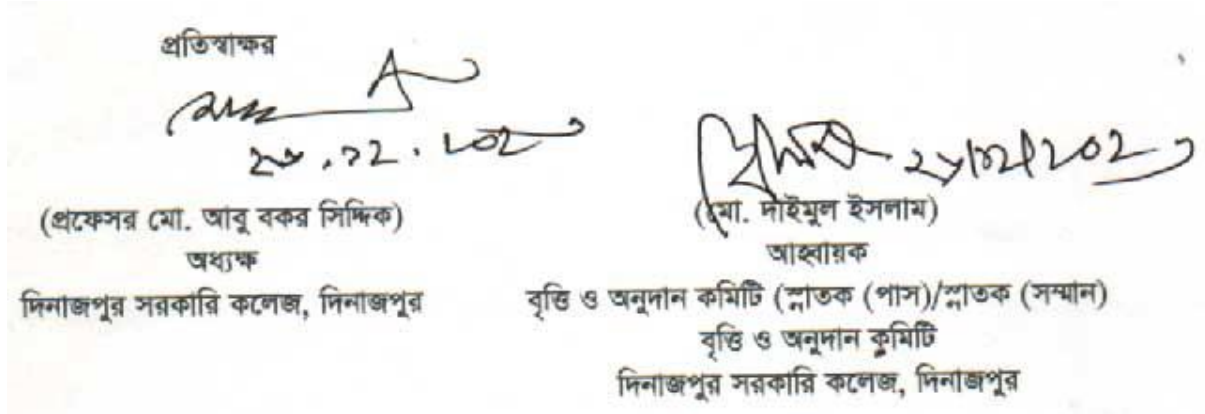 প্রতিস্বাক্ষর
(প্রফেসর মো. আবু বকর সিদ্দিক)
অধ্যক্ষ
দিনাজপুর সরকারি কলেজ, দিনাজপুর
(মো. দাইমুল ইসলাম)
আহ্বায়ক
বৃত্তি ও অনুদান কমিটি (স্নাতক (পাস)/স্নাতক (সম্মান)
বৃত্তি ও অনুদান কমিটি
দিনাজপুর সরকারি কলেজ, দিনাজপুর